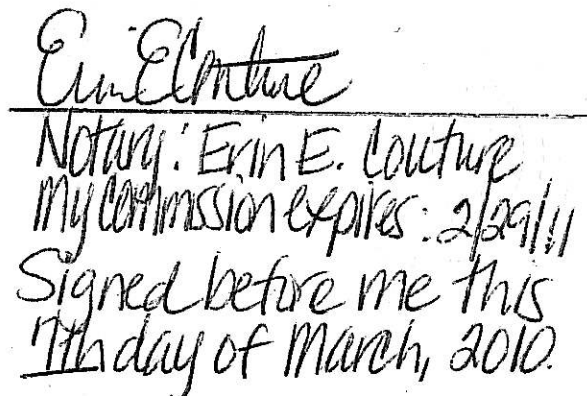 Erin E Couture
Notary: Erin E. Couture
My commission expires: 2/29/11
Signed before me this
7th day of March, 2010.